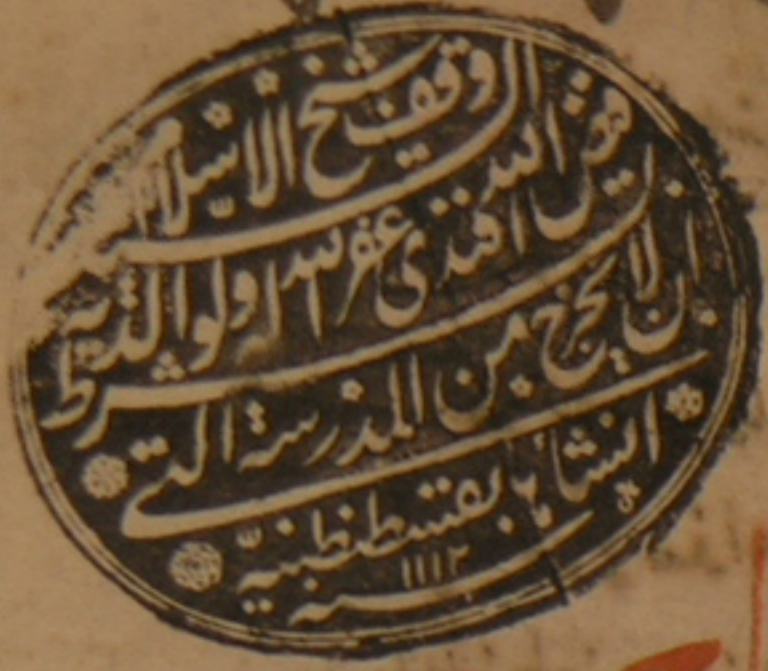 وقف شيخ الاسلام السيد
فيض الله افندى غفر الله له ولوالديه
بشرط ان لا يخرج من المدرسة التي
انشأها بقسطنطنيّة
سنه ١١١٣